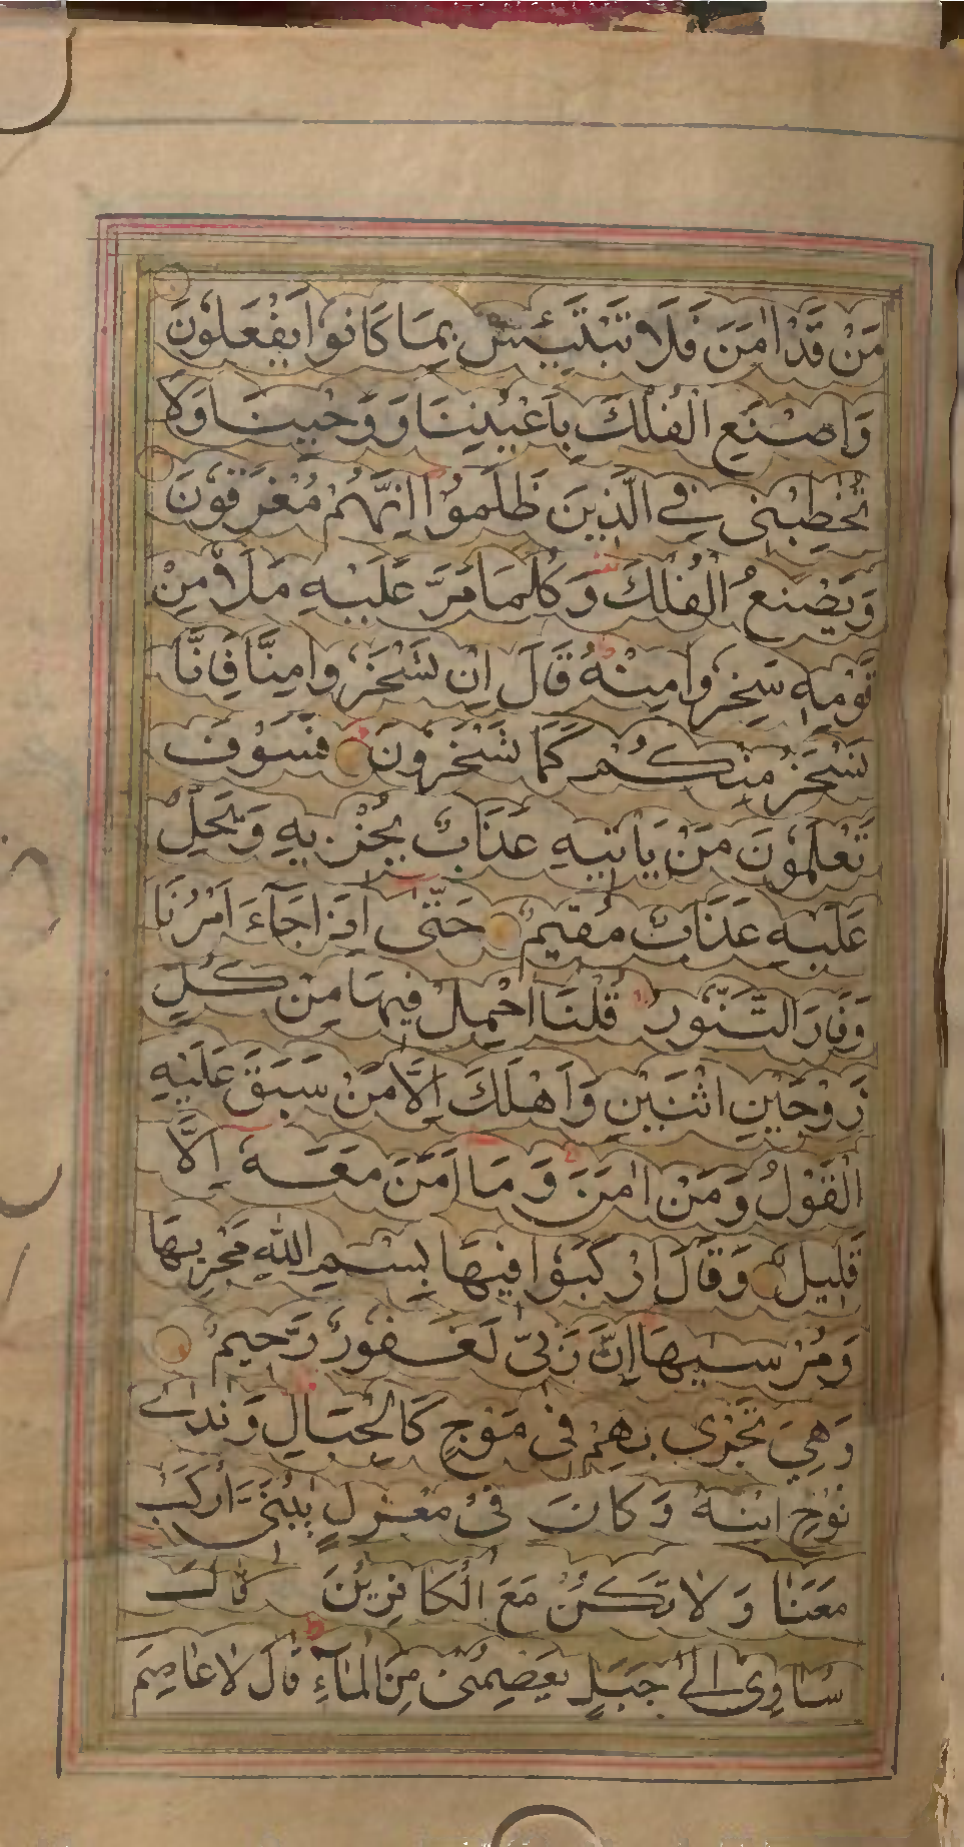 مَنْ قَدْ اٰمَنَ فَلَا تَبْتَئِسْ بِمَا كَانُوْا يَفْعَلُوْنَ
وَاصْنَعِ الْفُلْكَ بِاَعْيُنِنَا وَوَحْيِنَا وَلَا
تُخٰطِبْنِىْ فِى الَّذِيْنَ ظَلَمُوْا اِنَّهُمْ مُغْرَقُوْنَ
وَيَصْنَعُ الْفُلْكَ وَكُلَّمَا مَرَّ عَلَيْهِ مَلَاٌ مِنْ
قَوْمِهٖ سَخِرُوْا مِنْهُ قَالَ اِنْ تَسْخَرُوْا مِنَّا فَاِنَّا
نَسْخَرُ مِنْكُمْ كَمَا تَسْخَرُوْنَ فَسَوْفَ
تَعْلَمُوْنَ مَنْ يَاْتِيْهِ عَذَابٌ يُخْزِيْهِ وَيَحِلُّ
عَلَيْهِ عَذَابٌ مُقِيْمٌ حَتّٰى اِذَا جَآءَ اَمْرُنَا
وَفَارَ التَّنُّوْرُ قُلْنَا احْمِلْ فِيْهَا مِنْ كُلٍّ
زَوْجَيْنِ اثْنَيْنِ وَاَهْلَكَ اِلَّا مَنْ سَبَقَ عَلَيْهِ
الْقَوْلُ وَمَنْ اٰمَنَ وَمَا اٰمَنَ مَعَهٗ اِلَّا
قَلِيْلٌ وَقَالَ ارْكَبُوْا فِيْهَا بِسْمِ اللهِ مَجْرٖىهَا
وَمُرْسٰىهَا اِنَّ رَبِّىْ لَغَفُوْرٌ رَّحِيْمٌ
وَهِىَ تَجْرِىْ بِهِمْ فِىْ مَوْجٍ كَالْجِبَالِ وَنَادٰى
نُوْحٌ ابْنَهٗ وَكَانَ فِىْ مَعْزِلٍ يٰبُنَىَّ ارْكَبْ
مَعَنَا وَلَا تَكُنْ مَعَ الْكَافِرِيْنَ قَالَ
سَاٰوِىْ اِلٰى جَبَلٍ يَعْصِمُنِىْ مِنَ الْمَآءِ قَالَ لَا عَاصِمَ